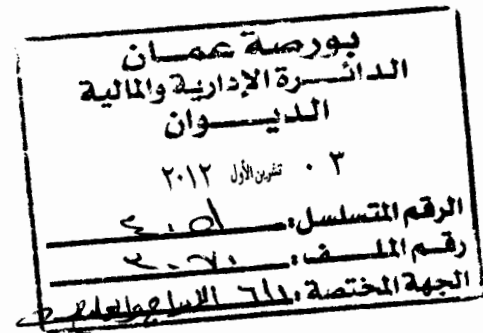 بورصة عمان
الدائرة الإدارية والمالية
الديوان
٠٣ تشرين الأول ٢٠١٢
الرقم المتسلسل:
رقم الملف:
الجهة المختصة: